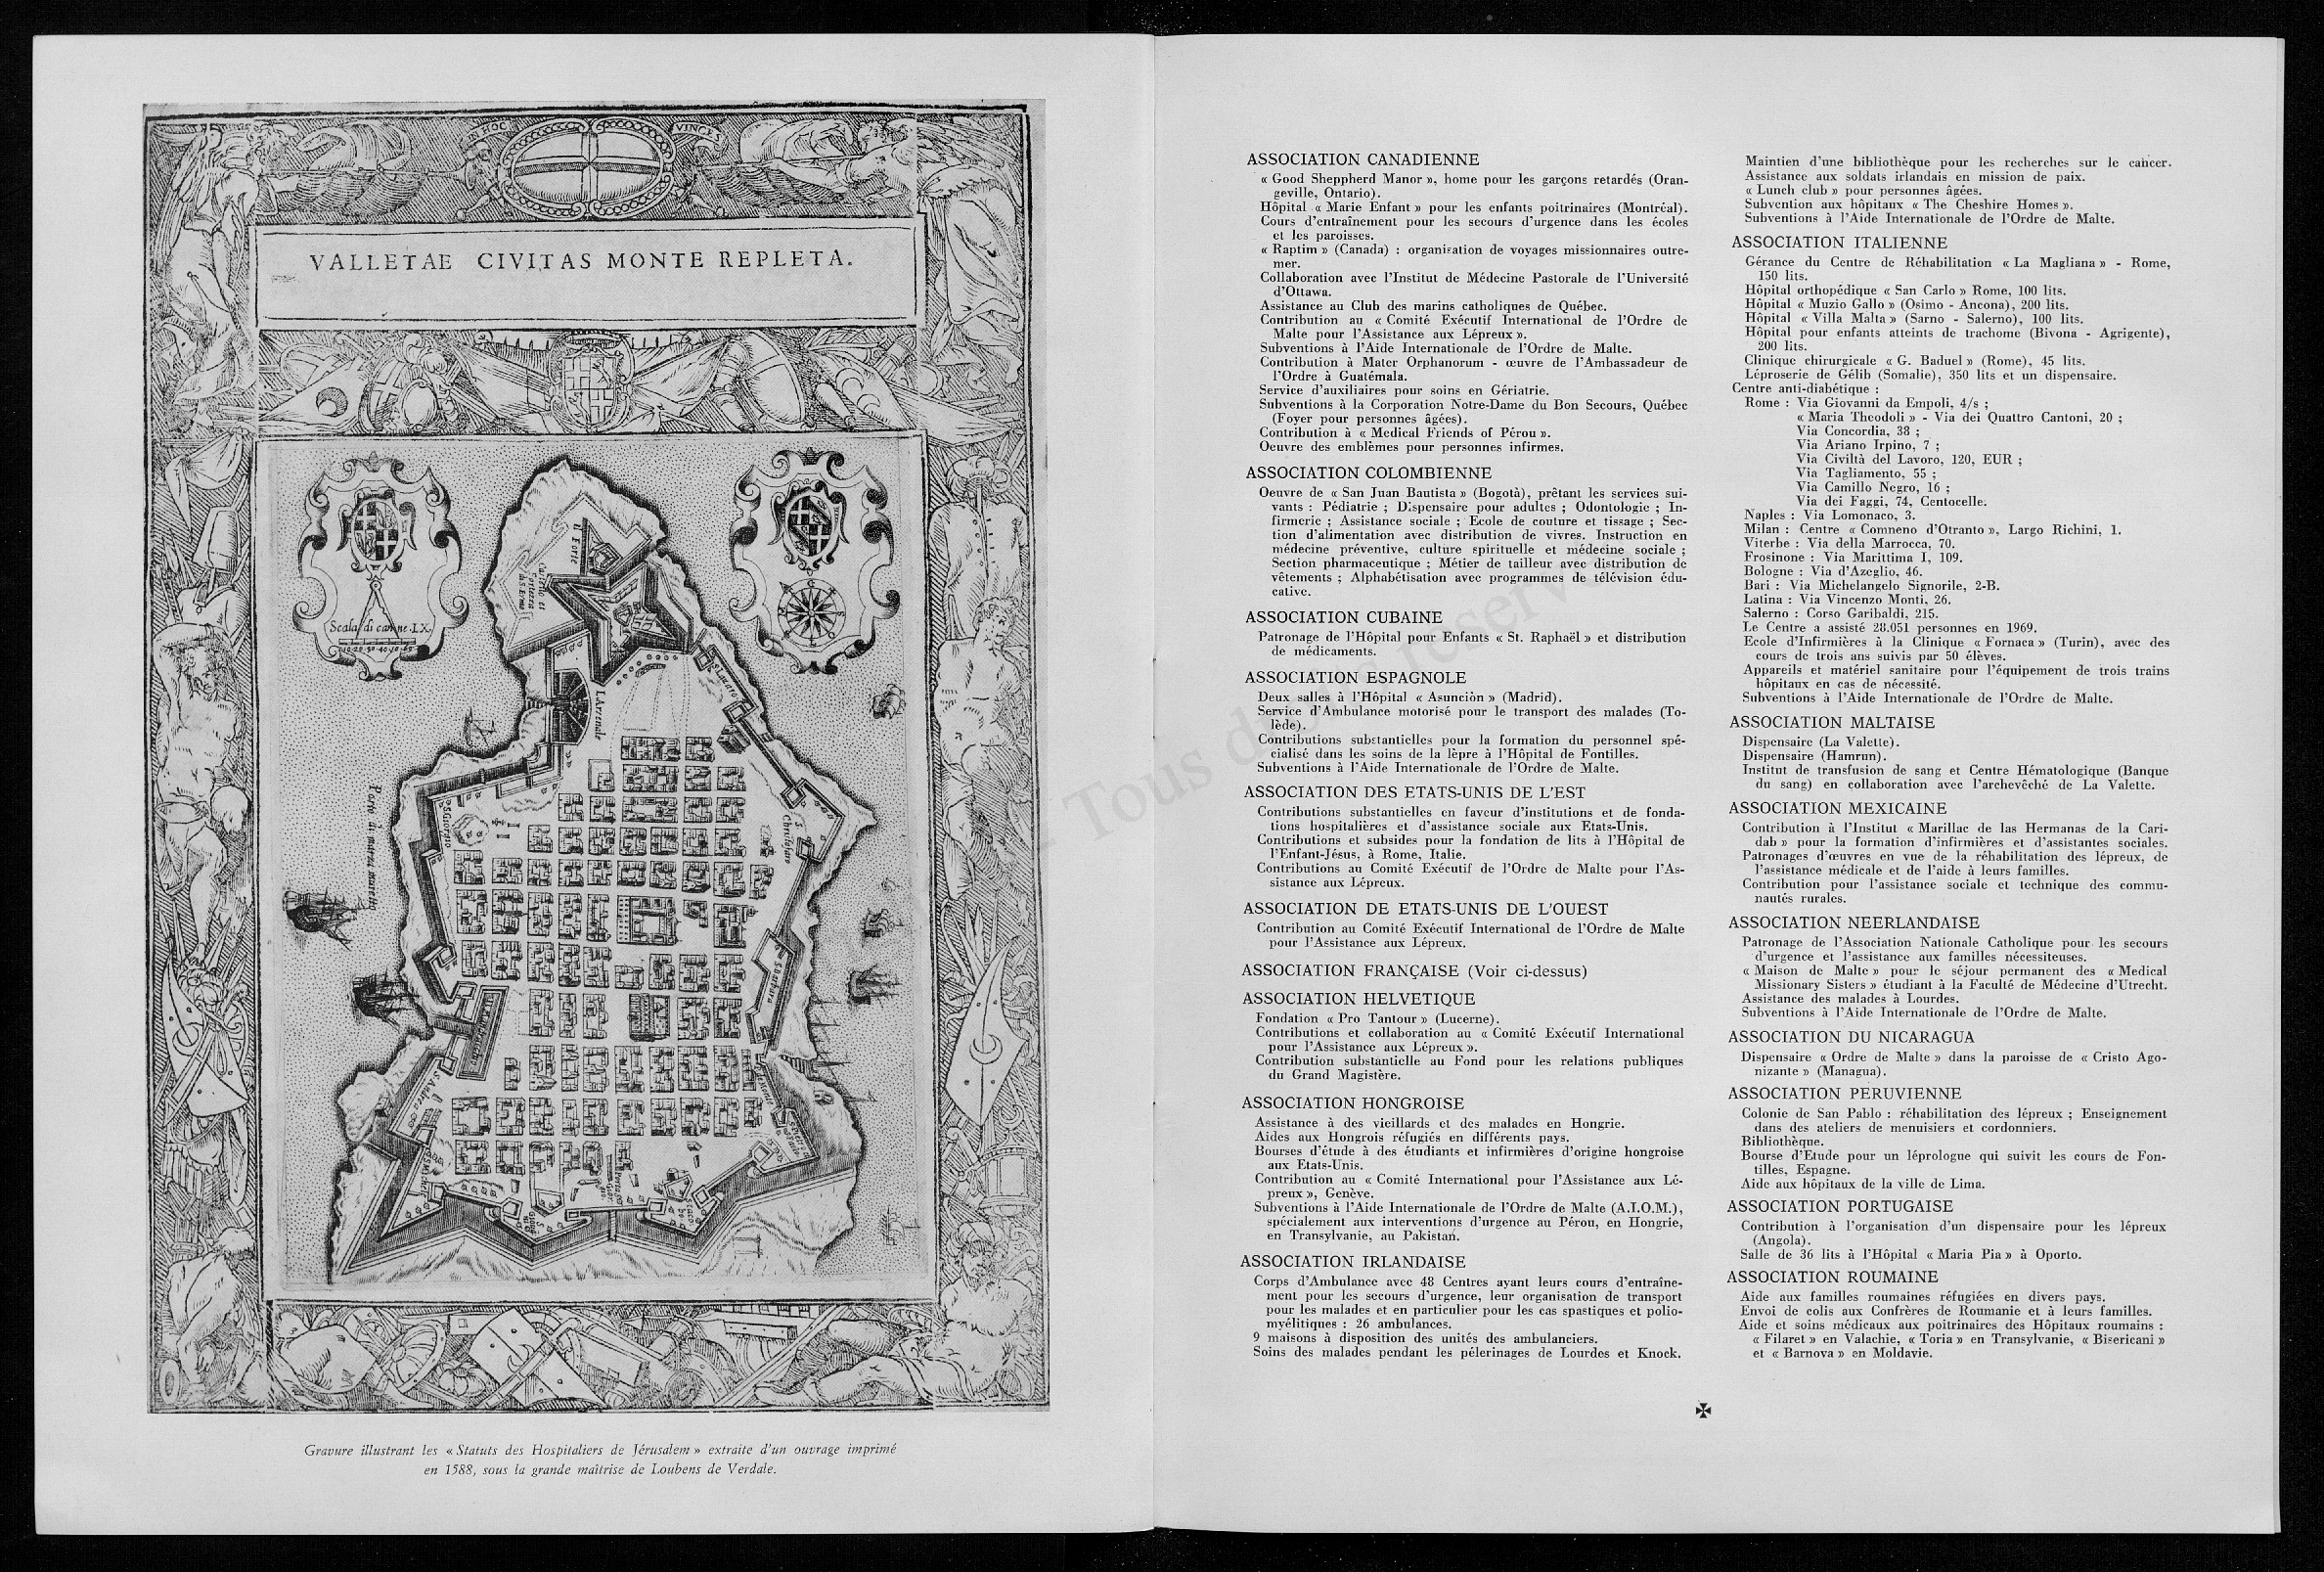 IN HOC
VINCES
VALLETAE CIVITAS MONTE REPLETA.
Scala di canne LX.
Il Forte
L'Arsenale
Gravure illustrant les « Statuts des Hospitaliers de Jérusalem » extraite d'un ouvrage imprimé
en 1588, sous la grande maîtrise de Loubens de Verdale.
ASSOCIATION CANADIENNE
« Good Sheppherd Manor », home pour les garçons retardés (Oran-
geville, Ontario).
Hôpital « Marie Enfant » pour les enfants poitrinaires (Montréal).
Cours d'entraînement pour les secours d'urgence dans les écoles
et les paroisses.
« Raptim » (Canada) : organisation de voyages missionnaires outre-
mer.
Collaboration avec l'Institut de Médecine Pastorale de l'Université
d'Ottawa.
Assistance au Club des marins catholiques de Québec.
Contribution au « Comité Exécutif International de l'Ordre de
Malte pour l'Assistance aux Lépreux ».
Subventions à l'Aide Internationale de l'Ordre de Malte.
Contribution à Mater Orphanorum - œuvre de l'Ambassadeur de
l'Ordre à Guatémala.
Service d'auxiliaires pour soins en Gériatrie.
Subventions à la Corporation Notre-Dame du Bon Secours, Québec
(Foyer pour personnes âgées).
Contribution à « Medical Friends of Pérou ».
Oeuvre des emblèmes pour personnes infirmes.
ASSOCIATION COLOMBIENNE
Oeuvre de « San Juan Bautista » (Bogotà), prêtant les services sui-
vants : Pédiatrie ; Dispensaire pour adultes ; Odontologie ; In-
firmerie ; Assistance sociale ; Ecole de couture et tissage ; Sec-
tion d'alimentation avec distribution de vivres. Instruction en
médecine préventive, culture spirituelle et médecine sociale ;
Section pharmaceutique ; Métier de tailleur avec distribution de
vêtements ; Alphabétisation avec programmes de télévision édu-
cative.
ASSOCIATION CUBAINE
Patronage de l'Hôpital pour Enfants « St. Raphaël » et distribution
de médicaments.
ASSOCIATION ESPAGNOLE
Deux salles à l'Hôpital « Asunciòn » (Madrid).
Service d'Ambulance motorisé pour le transport des malades (To-
lède).
Contributions substantielles pour la formation du personnel spé-
cialisé dans les soins de la lèpre à l'Hôpital de Fontilles.
Subventions à l'Aide Internationale de l'Ordre de Malte.
ASSOCIATION DES ETATS-UNIS DE L'EST
Contributions substantielles en faveur d'institutions et de fonda-
tions hospitalières et d'assistance sociale aux Etats-Unis.
Contributions et subsides pour la fondation de lits à l'Hôpital de
l'Enfant-Jésus, à Rome, Italie.
Contributions au Comité Exécutif de l'Ordre de Malte pour l'As-
sistance aux Lépreux.
ASSOCIATION DE ETATS-UNIS DE L'OUEST
Contribution au Comité Exécutif International de l'Ordre de Malte
pour l'Assistance aux Lépreux.
ASSOCIATION FRANÇAISE (Voir ci-dessus)
ASSOCIATION HELVETIQUE
Fondation « Pro Tantour » (Lucerne).
Contributions et collaboration au « Comité Exécutif International
pour l'Assistance aux Lépreux ».
Contribution substantielle au Fond pour les relations publiques
du Grand Magistère.
ASSOCIATION HONGROISE
Assistance à des vieillards et des malades en Hongrie.
Aides aux Hongrois réfugiés en différents pays.
Bourses d'étude à des étudiants et infirmières d'origine hongroise
aux Etats-Unis.
Contribution au « Comité International pour l'Assistance aux Lé-
preux », Genève.
Subventions à l'Aide Internationale de l'Ordre de Malte (A.I.O.M.),
spécialement aux interventions d'urgence au Pérou, en Hongrie,
en Transylvanie, au Pakistan.
ASSOCIATION IRLANDAISE
Corps d'Ambulance avec 48 Centres ayant leurs cours d'entraîne-
ment pour les secours d'urgence, leur organisation de transport
pour les malades et en particulier pour les cas spastiques et polio-
myélitiques : 26 ambulances.
9 maisons à disposition des unités des ambulanciers.
Soins des malades pendant les pélerinages de Lourdes et Knock.
Maintien d'une bibliothèque pour les recherches sur le cancer.
Assistance aux soldats irlandais en mission de paix.
« Lunch club » pour personnes âgées.
Subvention aux hôpitaux « The Cheshire Homes ».
Subventions à l'Aide Internationale de l'Ordre de Malte.
ASSOCIATION ITALIENNE
Gérance du Centre de Réhabilitation « La Magliana » - Rome,
150 lits.
Hôpital orthopédique « San Carlo » Rome, 100 lits.
Hôpital « Muzio Gallo » (Osimo - Ancona), 200 lits.
Hôpital « Villa Malta » (Sarno - Salerno), 100 lits.
Hôpital pour enfants atteints de trachome (Bivona - Agrigente),
200 lits.
Clinique chirurgicale « G. Baduel » (Rome), 45 lits.
Léproserie de Gélib (Somalie), 350 lits et un dispensaire.
Centre anti-diabétique :
Rome : Via Giovanni da Empoli, 4/s ;
« Maria Theodoli » - Via dei Quattro Cantoni, 20 ;
Via Concordia, 38 ;
Via Ariano Irpino, 7 ;
Via Civiltà del Lavoro, 120, EUR ;
Via Tagliamento, 55 ;
Via Camillo Negro, 16 ;
Via dei Faggi, 74, Centocelle.
Naples : Via Lomonaco, 3.
Milan : Centre « Comneno d'Otranto », Largo Richini, 1.
Viterbe : Via della Marrocca, 70.
Frosinone : Via Marittima I, 109.
Bologne : Via d'Azeglio, 46.
Bari : Via Michelangelo Signorile, 2-B.
Latina : Via Vincenzo Monti, 26.
Salerno : Corso Garibaldi, 215.
Le Centre a assisté 28.051 personnes en 1969.
Ecole d'Infirmières à la Clinique « Fornaca » (Turin), avec des
cours de trois ans suivis par 50 élèves.
Appareils et matériel sanitaire pour l'équipement de trois trains
hôpitaux en cas de nécessité.
Subventions à l'Aide Internationale de l'Ordre de Malte.
ASSOCIATION MALTAISE
Dispensaire (La Valette).
Dispensaire (Hamrun).
Institut de transfusion de sang et Centre Hématologique (Banque
du sang) en collaboration avec l'archevêché de La Valette.
ASSOCIATION MEXICAINE
Contribution à l'Institut « Marillac de las Hermanas de la Cari-
dab » pour la formation d'infirmières et d'assistantes sociales.
Patronages d'œuvres en vue de la réhabilitation des lépreux, de
l'assistance médicale et de l'aide à leurs familles.
Contribution pour l'assistance sociale et technique des commu-
nautés rurales.
ASSOCIATION NEERLANDAISE
Patronage de l'Association Nationale Catholique pour les secours
d'urgence et l'assistance aux familles nécessiteuses.
« Maison de Malte » pour le séjour permanent des « Medical
Missionary Sisters » étudiant à la Faculté de Médecine d'Utrecht.
Assistance des malades à Lourdes.
Subventions à l'Aide Internationale de l'Ordre de Malte.
ASSOCIATION DU NICARAGUA
Dispensaire « Ordre de Malte » dans la paroisse de « Cristo Ago-
nizante » (Managua).
ASSOCIATION PERUVIENNE
Colonie de San Pablo : réhabilitation des lépreux ; Enseignement
dans des ateliers de menuisiers et cordonniers.
Bibliothèque.
Bourse d'Etude pour un léprologue qui suivit les cours de Fon-
tilles, Espagne.
Aide aux hôpitaux de la ville de Lima.
ASSOCIATION PORTUGAISE
Contribution à l'organisation d'un dispensaire pour les lépreux
(Angola).
Salle de 36 lits à l'Hôpital « Maria Pia » à Oporto.
ASSOCIATION ROUMAINE
Aide aux familles roumaines réfugiées en divers pays.
Envoi de colis aux Confrères de Roumanie et à leurs familles.
Aide et soins médicaux aux poitrinaires des Hôpitaux roumains :
« Filaret » en Valachie, « Toria » en Transylvanie, « Bisericani »
et « Barnova » en Moldavie.